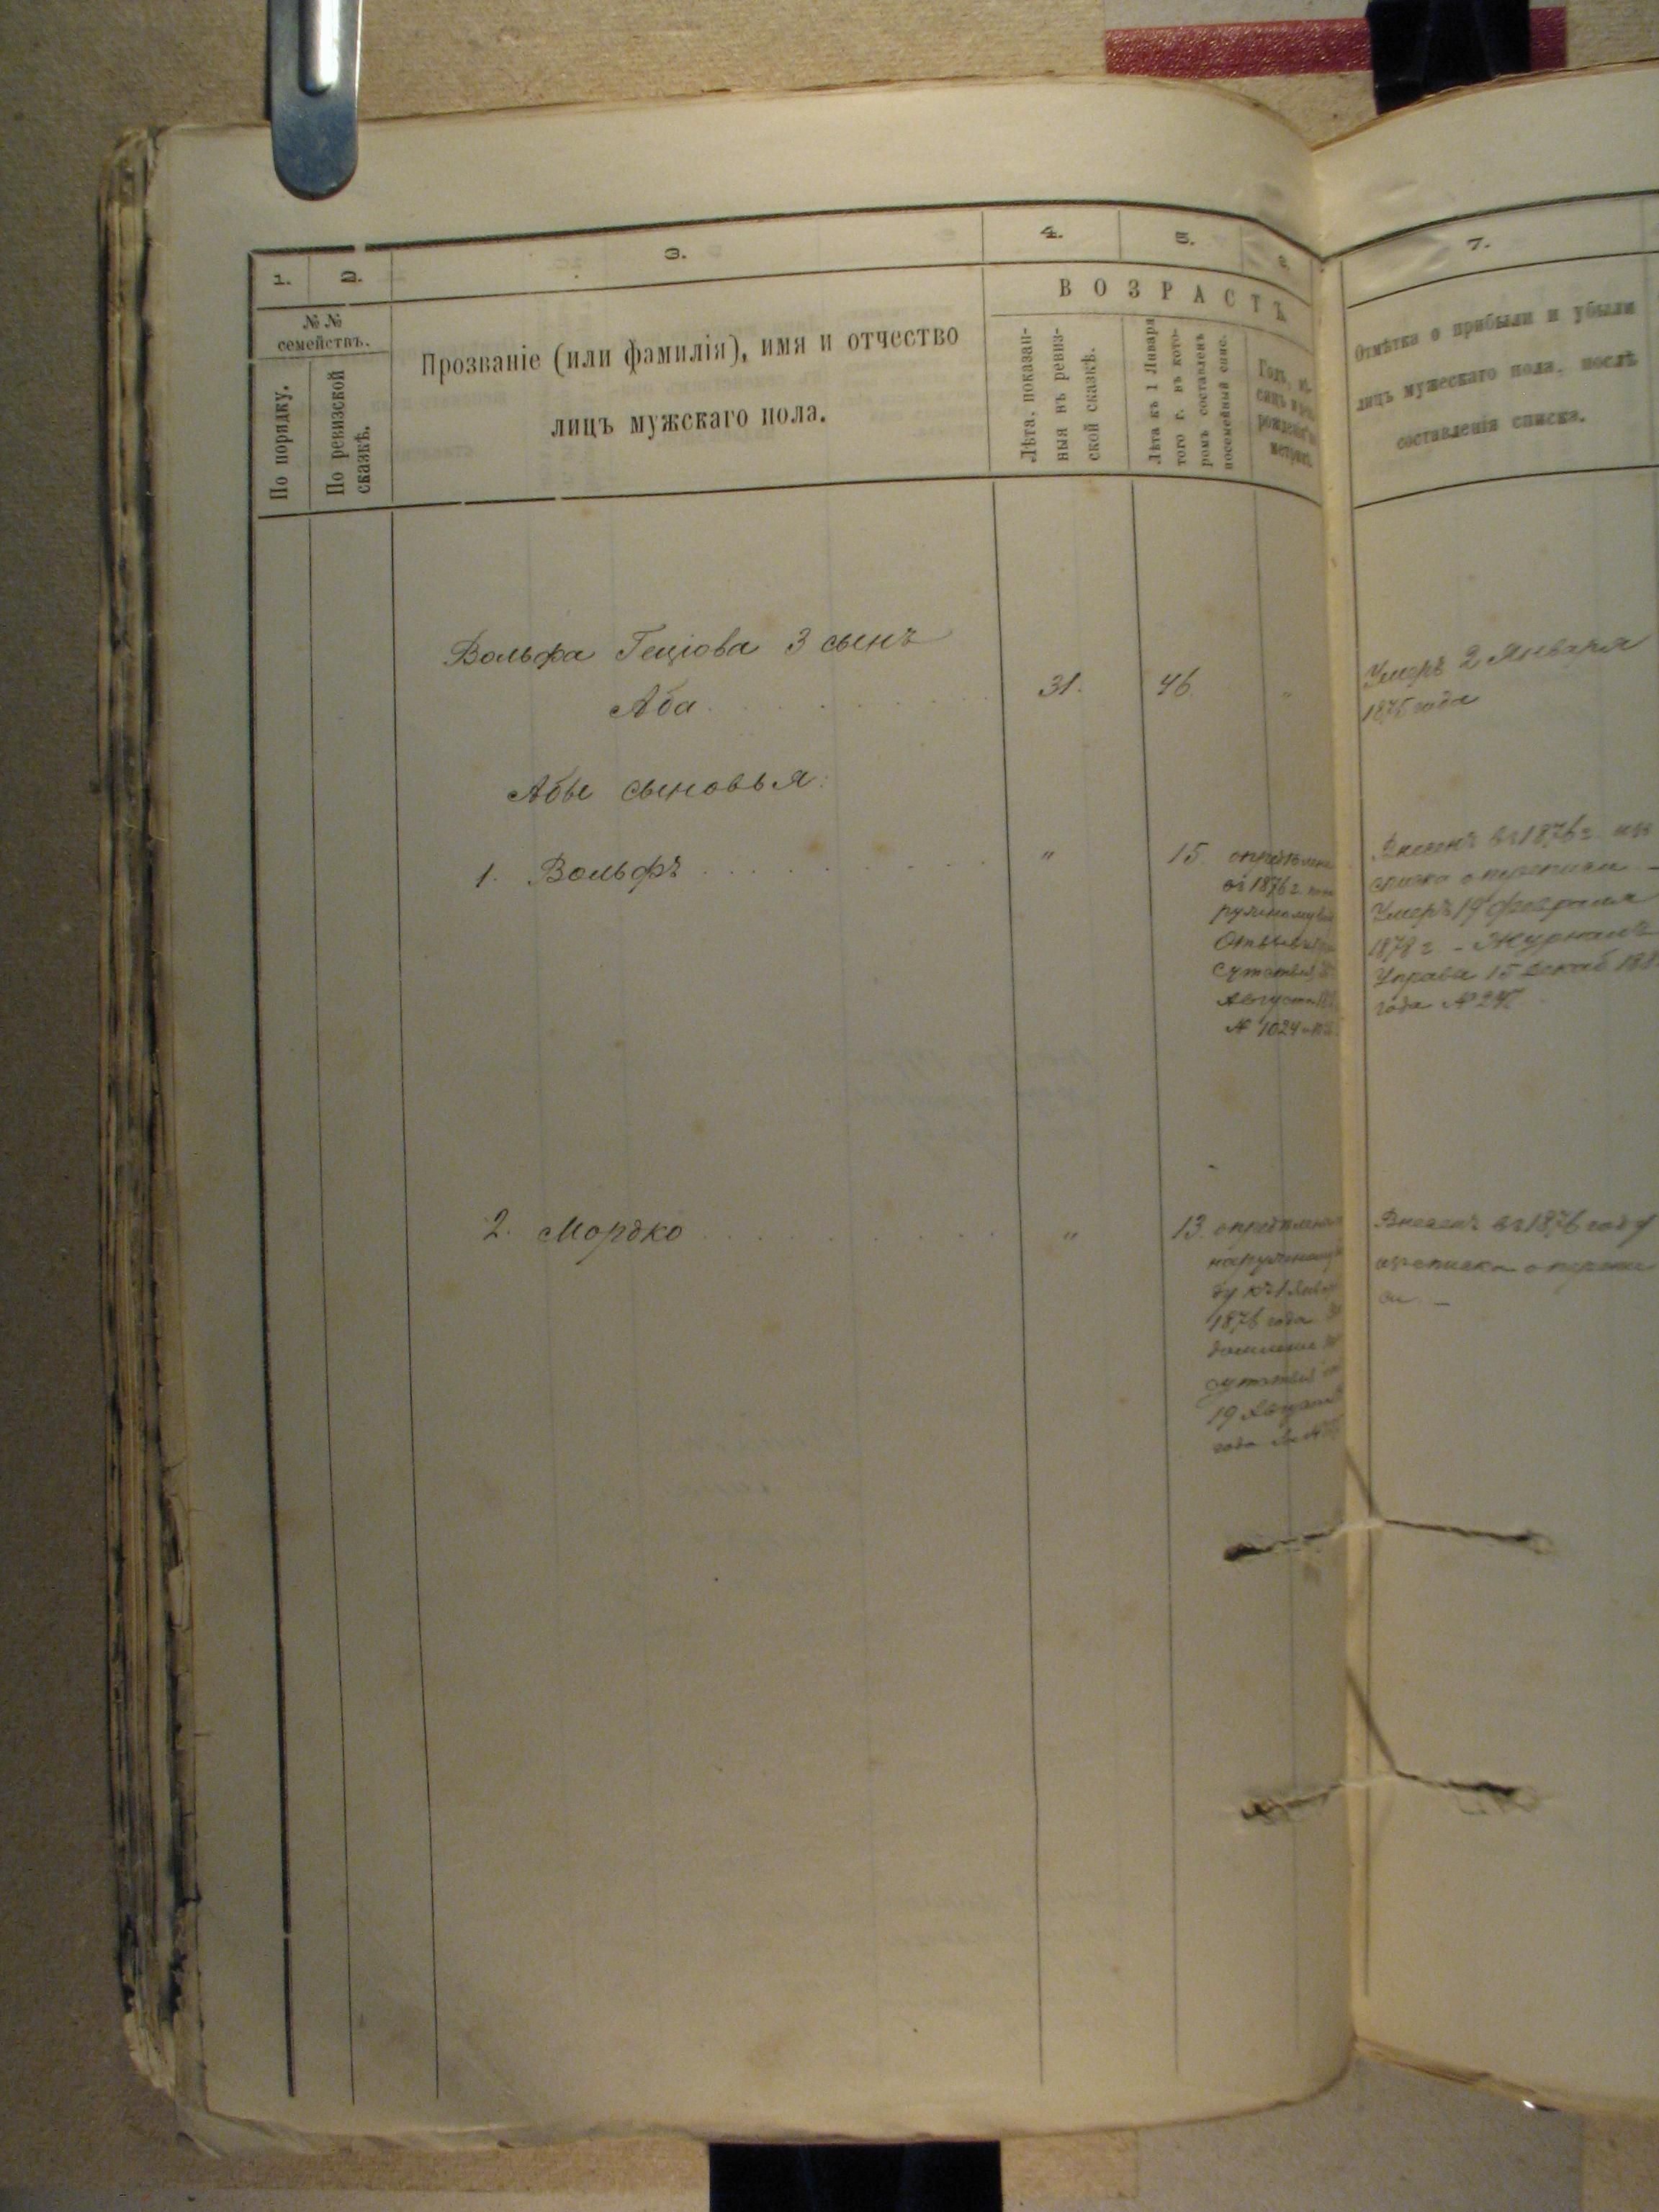 1.
2.
3.
4.
5.
6.
7.
№№
семействъ.
По порядку.
По ревизской
сказкѣ.
Прозваніе (или фамилія), имя и отчество
лицъ мужскаго пола.
ВОЗРАСТЪ
Лѣта, показан-
ныя въ ревиз-
ской сказкѣ.
Лѣта къ 1 Января
того г. въ кото-
ромъ составленъ
посемейный спис.
Годъ, мѣ-
сяцъ
рожденія
метрик
Отмѣтка о прибыли и убыли
лицъ мужескаго пола, послѣ
составленія списка.
Вольфа Геціова 3 сынъ
Аба
31.
46.
"
Умеръ 2 Января
1875 года
Абы сыновья:
1. Вольфъ
"
15.
1876 г.
Августа
№ 1024
Внесенъ въ 1876 г. изъ
списка о
Умеръ 19 Февраля
1878 г. – Журналъ
Управы 15 Декаб 188
года № 247
2. Мордко
"
13.
наружному
ду къ 1 Янв
1876 года
19 Августа
года
Внесенъ въ 1876 году
изъ списка о